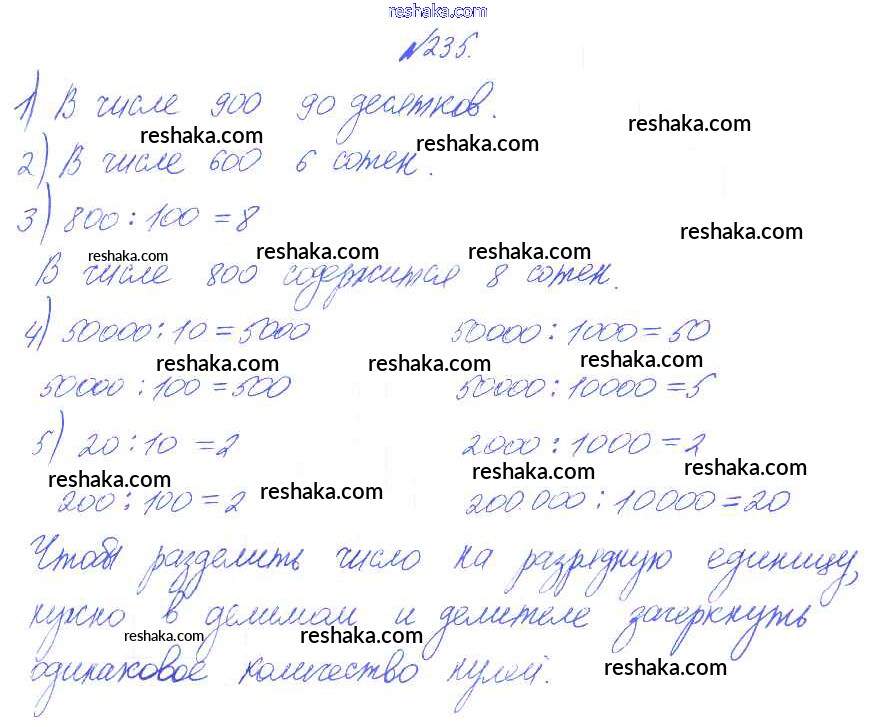 reshaka.com
№235.
1) В числе 900 90 десятков.
reshaka.com reshaka.com reshaka.com
2) В числе 600 6 сотен.
3) 800 : 100 = 8
reshaka.com
reshaka.com reshaka.com reshaka.com
В числе 800 содержится 8 сотен.
4) 50000 : 10 = 5000 50000 : 1000 = 50
reshaka.com reshaka.com reshaka.com
50000 : 100 = 500 50000 : 10000 = 5
5) 20 : 10 = 2 2000 : 1000 = 2
reshaka.com reshaka.com reshaka.com reshaka.com
200 : 100 = 2 200 000 : 10000 = 20
Чтобы разделить число на разрядную единицу,
нужно в делимом и делителе зачеркнуть
reshaka.com reshaka.com
одинаковое количество нулей.
reshaka.com